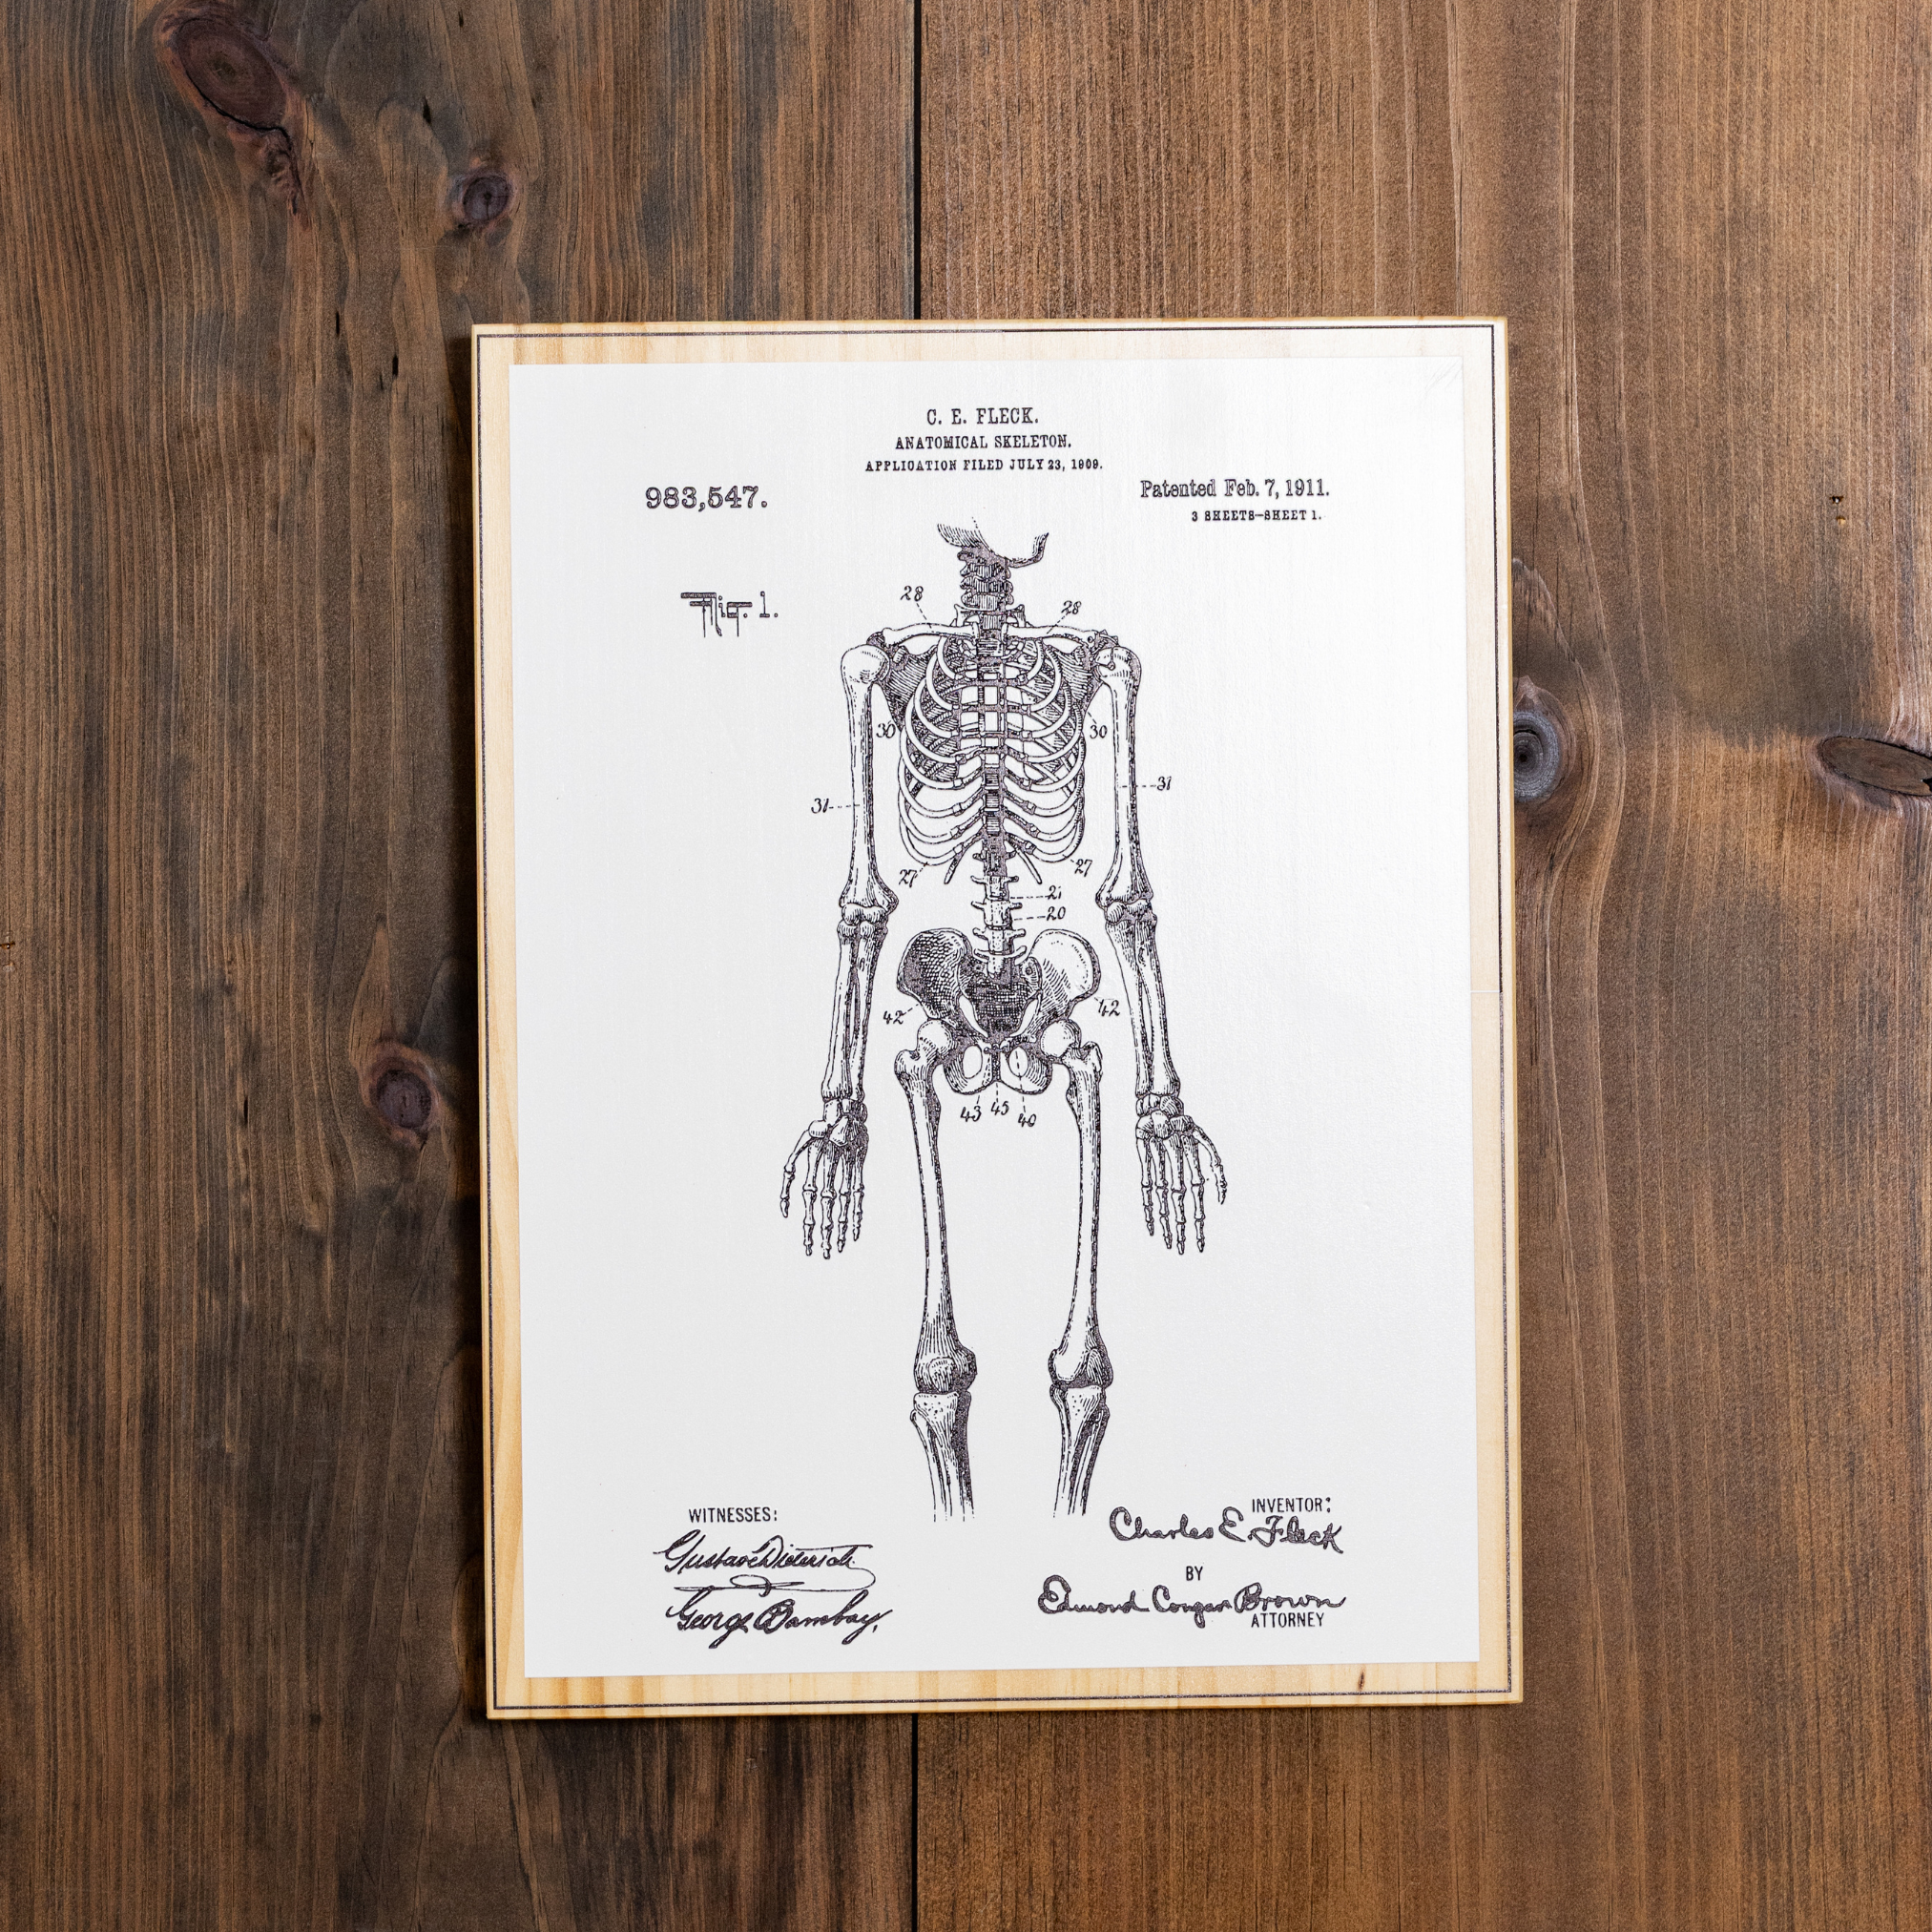 C. E. FLECK.
ANATOMICAL SKELETON.
APPLICATION FILED JULY 23, 1909.
983,547.
Patented Feb. 7, 1911.
3 SHEETS—SHEET 1.
Fig. 1.
28
28
30
30
31
31
27
27
21
20
42
42
43
45
40
WITNESSES:
Gustave Dieterich
George Bambay,
INVENTOR:
Charles E. Fleck
BY
Edmond Congar Brown
ATTORNEY